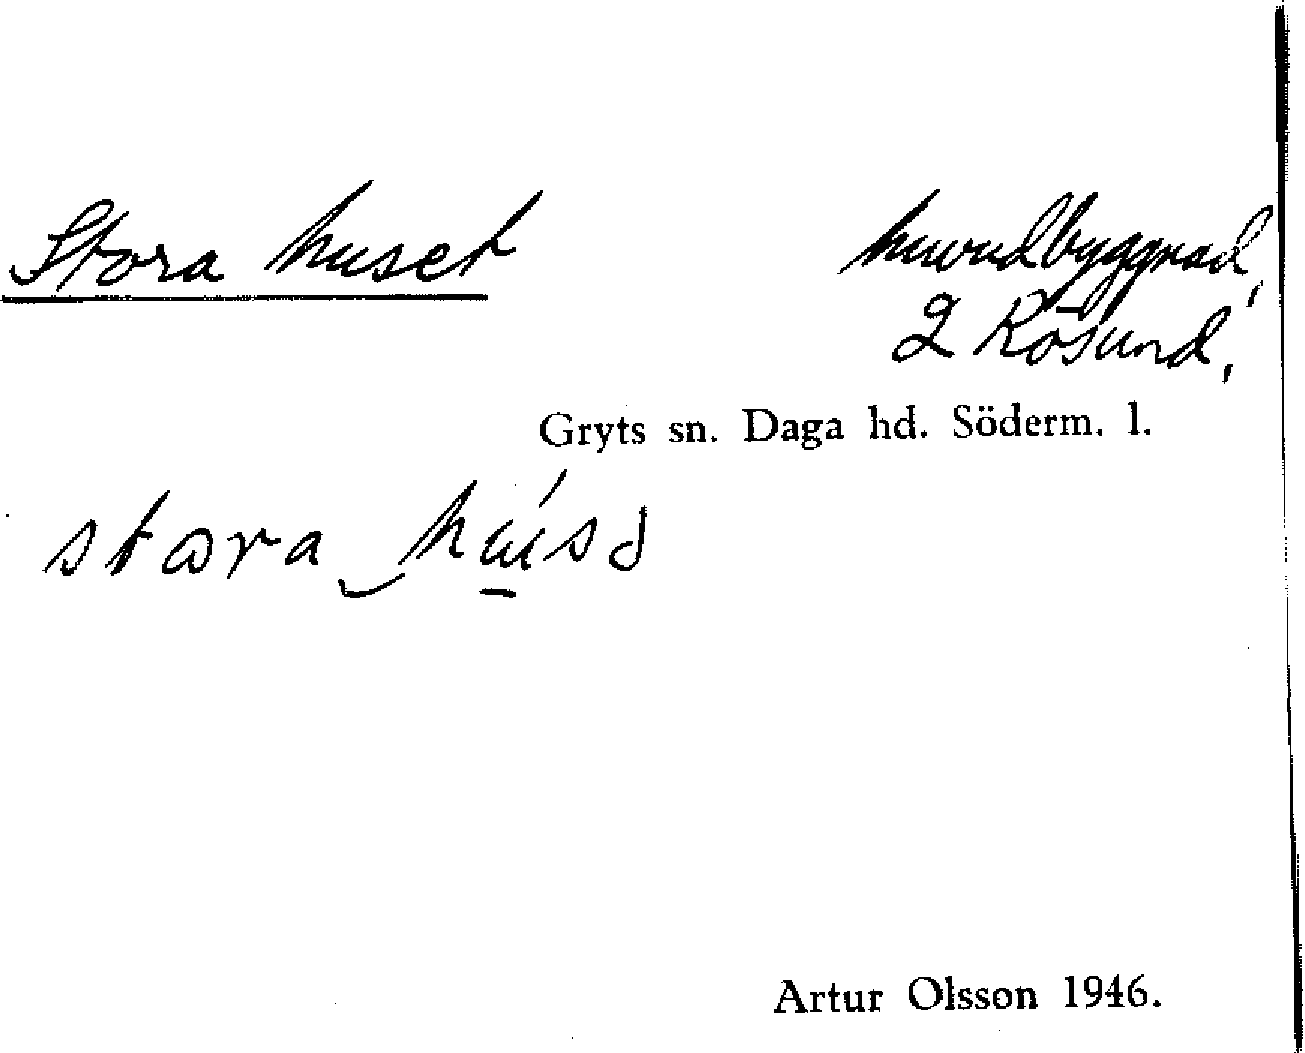 Stora huset
huvudbyggnad,
2 Rösund,
Gryts sn. Daga hd. Söderm. l.
stora
Artur Olsson 1946.